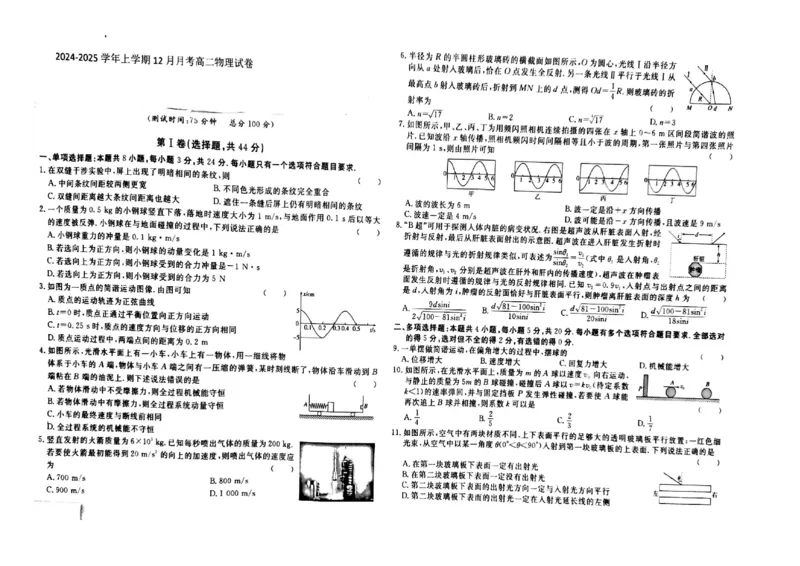 2024-2025 学年上学期 12 月月考高二物理试卷
(测试时间:75 分钟 总分 100 分)
第Ⅰ卷(选择题,共 44 分)
一、单项选择题:本题共 8 小题,每小题 3 分,共 24 分.每小题只有一个选项符合题目要求.
1.在双缝干涉实验中,屏上出现了明暗相间的条纹,则 ( )
A.中间条纹间距较两侧更宽
B.不同色光形成的条纹完全重合
C.双缝间距离越大条纹间距离也越大
D.遮住一条缝后屏上仍有明暗相间的条纹
2.一个质量为 0.5 kg 的小钢球竖直下落,落地时速度大小为 1 m/s,与地面作用 0.1 s 后以等大
的速度被反弹.小钢球在与地面碰撞的过程中,下列说法正确的是 ( )
A.小钢球重力的冲量是 0.1 kg·m/s
B.若选向上为正方向,则小钢球的动量变化是 1 kg·m/s
C.若选向上为正方向,则小钢球受到的合力冲量是−1 N·s
D.若选向上为正方向,则小钢球受到的合力为 5 N
3.如图为一质点的简谐运动图像.由图可知 ( )
A.质点的运动轨迹为正弦曲线
B.t=0 时,质点正通过平衡位置向正方向运动
C.t=0.25 s 时,质点的速度方向与位移的正方向相同
D.质点运动过程中,两端点间的距离为 0.2 m
x/cm
5
0 0.1 0.2 0.3 0.4 0.5 t/s
−5
4.如图所示,光滑水平面上有一小车,小车上有一物体,用一细线将物
体系于小车的 A 端,物体与小车 A 端之间有一压缩的弹簧,某时刻线断了,物体沿车滑动到 B
端粘在 B 端的油泥上.则下述说法错误的是 ( )
A.若物体滑动中不受摩擦力,则全过程机械能守恒
B.若物体滑动中有摩擦力,则全过程系统动量守恒
C.小车的最终速度与断线前相同
D.全过程系统的机械能不守恒
A B
5.竖直发射的火箭质量为 6×10³ kg.已知每秒喷出气体的质量为 200 kg.
若要使火箭最初能得到 20 m/s² 的向上的加速度,则喷出气体的速度应
为 ( )
A.700 m/s
B.800 m/s
C.900 m/s
D.1 000 m/s
6.半径为 R 的半圆柱形玻璃砖的横截面如图所示,O 为圆心,光线Ⅰ沿半径方
向从 a 处射入玻璃后,恰在 O 点发生全反射.另一条光线Ⅱ平行于光线Ⅰ从
最高点 b 射入玻璃砖后,折射到 MN 上的 d 点,测得 Od=1/4R.则玻璃砖的折
射率为 ( )
A.n=√17
B.n=2
C.n=√17
D.n=3
Ⅰ Ⅱ a b
M O d N
7.如图所示,甲、乙、丙、丁为用频闪照相机连续拍摄的四张在 x 轴上 0~6 m 区间段简谐波的照
片.已知波沿 x 轴传播,照相机频闪时间间隔相等且小于波的周期,第一张照片与第四张照片
间隔为 1 s,则由照片可知 ( )
0 1 2 3 4 5 6
甲 乙 丙 丁
A.波的波长为 6 m
B.波一定是沿+x 方向传播
C.波速一定是 4 m/s
D.波可能是沿−x 方向传播,且波速是 9 m/s
8.“B 超”可用于探测人体内脏的病变状况.右图是超声波从肝脏表面入射,经
折射与反射,最后从肝脏表面射出的示意图.超声波在进入肝脏发生折射时
遵循的规律与光的折射规律类似,可表述为 sinθ₁/sinθ₂=v₁/v₂(式中 θ₁ 是入射角,θ₂
是折射角,v₁、v₂ 分别是超声波在肝外和肝内的传播速度),超声波在肿瘤表
面发生反射时遵循的规律与光的反射规律相同.已知 v₂=0.9v₁,入射点与出射点之间的距离
是 d,入射角为 i,肿瘤的反射面恰好与肝脏表面平行,则肿瘤离肝脏表面的深度 h 为 ( )
A. 9dsini/2√100−81sin²i
B. d√81−100sin²i/10sini
C. d√81−100sin²i/20sini
D. d√100−81sin²i/18sini
肝脏
二、多项选择题:本题共 4 小题,每小题 5 分,共 20 分.每小题有多个选项符合题目要求.全部选对
的得 5 分,选对但不全的得 2 分,有选错的得 0 分.
9.一单摆做简谐运动,在偏角增大的过程中,摆球的 ( )
A.位移增大
B.速度增大
C.回复力增大
D.机械能增大
10.如图所示,在光滑水平面上,质量为 m 的 A 球以速度 v₀ 向右运动,
与静止的质量为 5m 的 B 球碰撞,碰撞后 A 球以 v=kv₀(待定系数
k<1)的速率弹回,并与固定挡板 P 发生弹性碰撞,若要使 A 球能
再次追上 B 球并相撞,则系数 k 可以是 ( )
A. 1/4
B. 2/5
C. 2/3
D. 1/7
P A v₀ B
11.如图所示,空气中有两块材质不同、上下表面平行的足够大的透明玻璃板平行放置;一红色细
光束,从空气中以某一角度 θ(0°<θ<90°)入射到第一块玻璃板的上表面.下列说法正确的是
( )
A.在第一块玻璃板下表面一定有出射光
B.在第二块玻璃板下表面一定没有出射光
C.第二块玻璃板下表面的出射光方向一定与入射光方向平行
D.第二块玻璃板下表面的出射光一定在入射光延长线的左侧
左 右